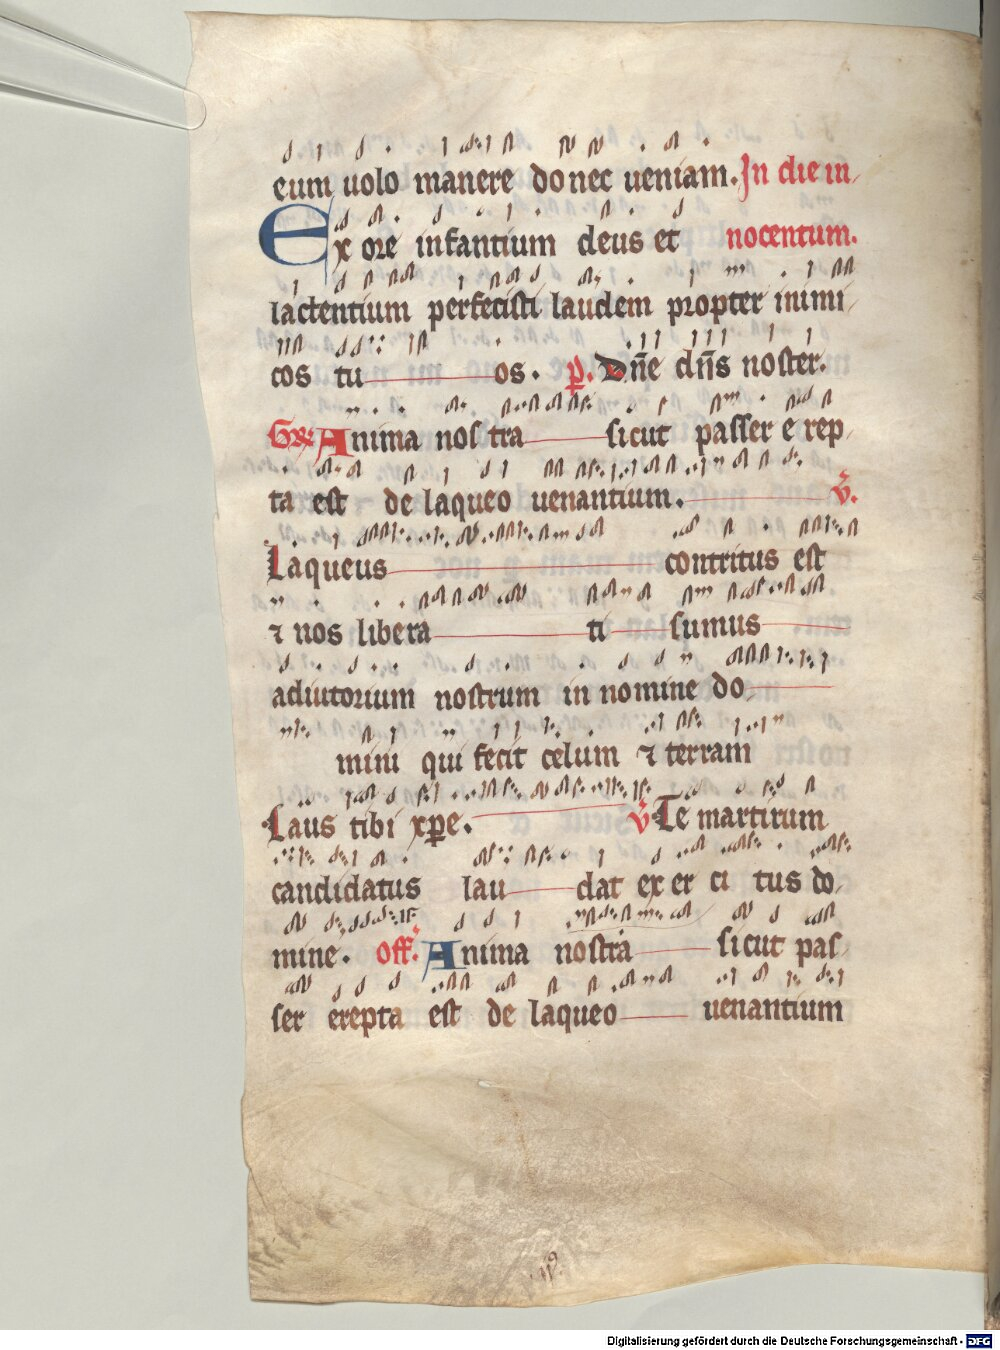 eum uolo manere donec ueniam. In die in
Ex ore infantium deus et nocentum.
lactentium perfecisti laudem propter inimi
cos tu os. p. Dn̄e dn̄s noster.
Gr Anima nostra sicut passer erep
ta est de laqueo uenantium. v̄.
Laqueus contritus est
⁊ nos libera ti sumus
adiutorium nostrum in nomine do
mini qui fecit celum ⁊ terram
Laus tibi xp̄e. v̄ Te martirum
candidatus lau dat exerci tus do
mine. Off. Anima nostra sicut pas
ser erepta est de laqueo uenantium
Digitalisierung gefördert durch die Deutsche Forschungsgemeinschaft - DFG